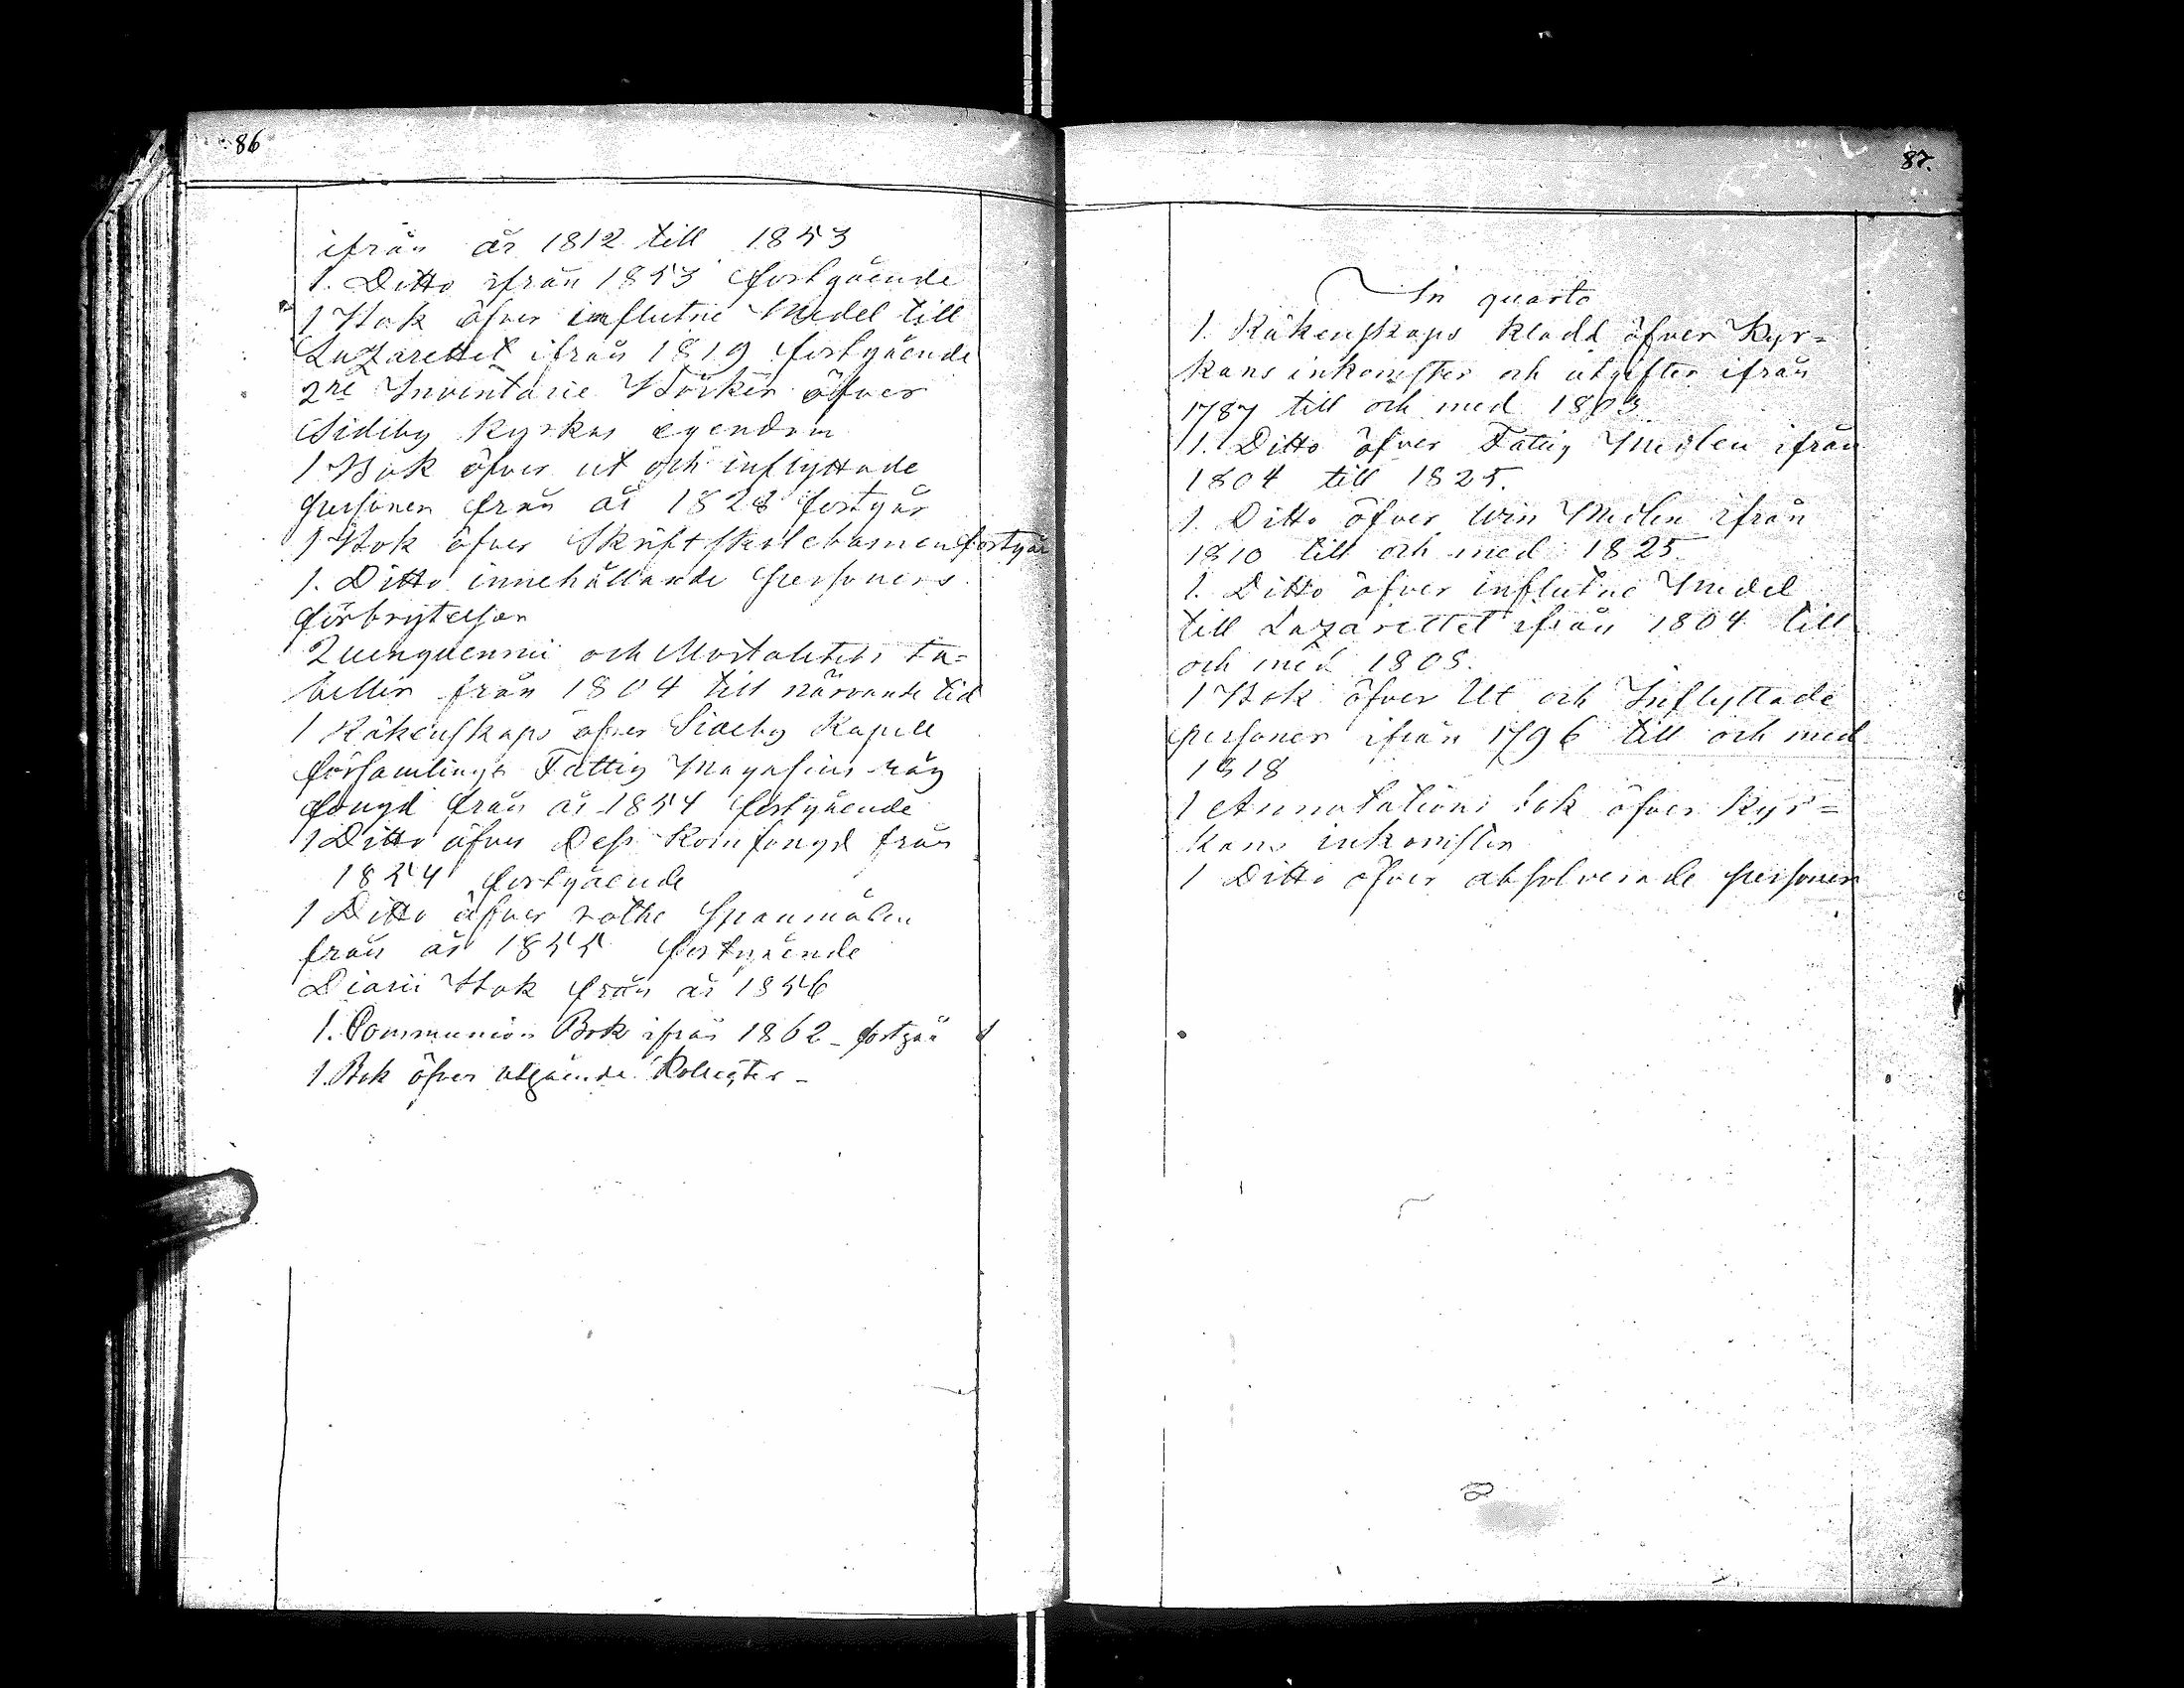 86
ifrån år 1812 till 1853
1. Ditto ifrån 1853 fortgående
1 Bok öfver influtne Medel till
Lazarettet ifrån 1819 fortgående
2ne Inventarie Böcker öfver
Sideby Kyrkas egendom
1 Bok öfver ut och inflyttade
personer från år 1828 fortgår
1 Bok öfver Skriftskolebarnen fortgår
1. Ditto innehållande personers
förbrytelser
Quenquenni och Mortalitets ta=
beller från 1804 till närvande tid
1 Räkenskaps öfver Sideby Kapell
församlings Fattig Magasins råg
fongd från år 1854 fortgående
1 Ditto öfver Dess Kornfongd från
1854 fortgående
1 Ditto öfver rothe Spanmålen
från år 1855 fortgående
Diarii Bok från år 1856
1. Communion Bok ifrån 1862 - fortgåe
1. Bok öfver utgående Kollegter -
87.
In quarto
1. Räkenskaps kladd öfver Kyr=
kans inkomster och utgifter ifrån
1787 till och med 1803
1. Ditto öfver Fattig Medlen ifrån
1804 till 1825.
1. Ditto öfver Win Medlen ifrån
1810 till och med 1825
1. Ditto öfver influtne Medel
till Lazarettet ifrån 1804 till
och med 1808.
1 Bok öfver Ut och Inflyttade
personer ifrån 1796 till och med
1818
1 Annotations bok öfver Kyr=
kans inkomster
1 Ditto öfver absolverade personer